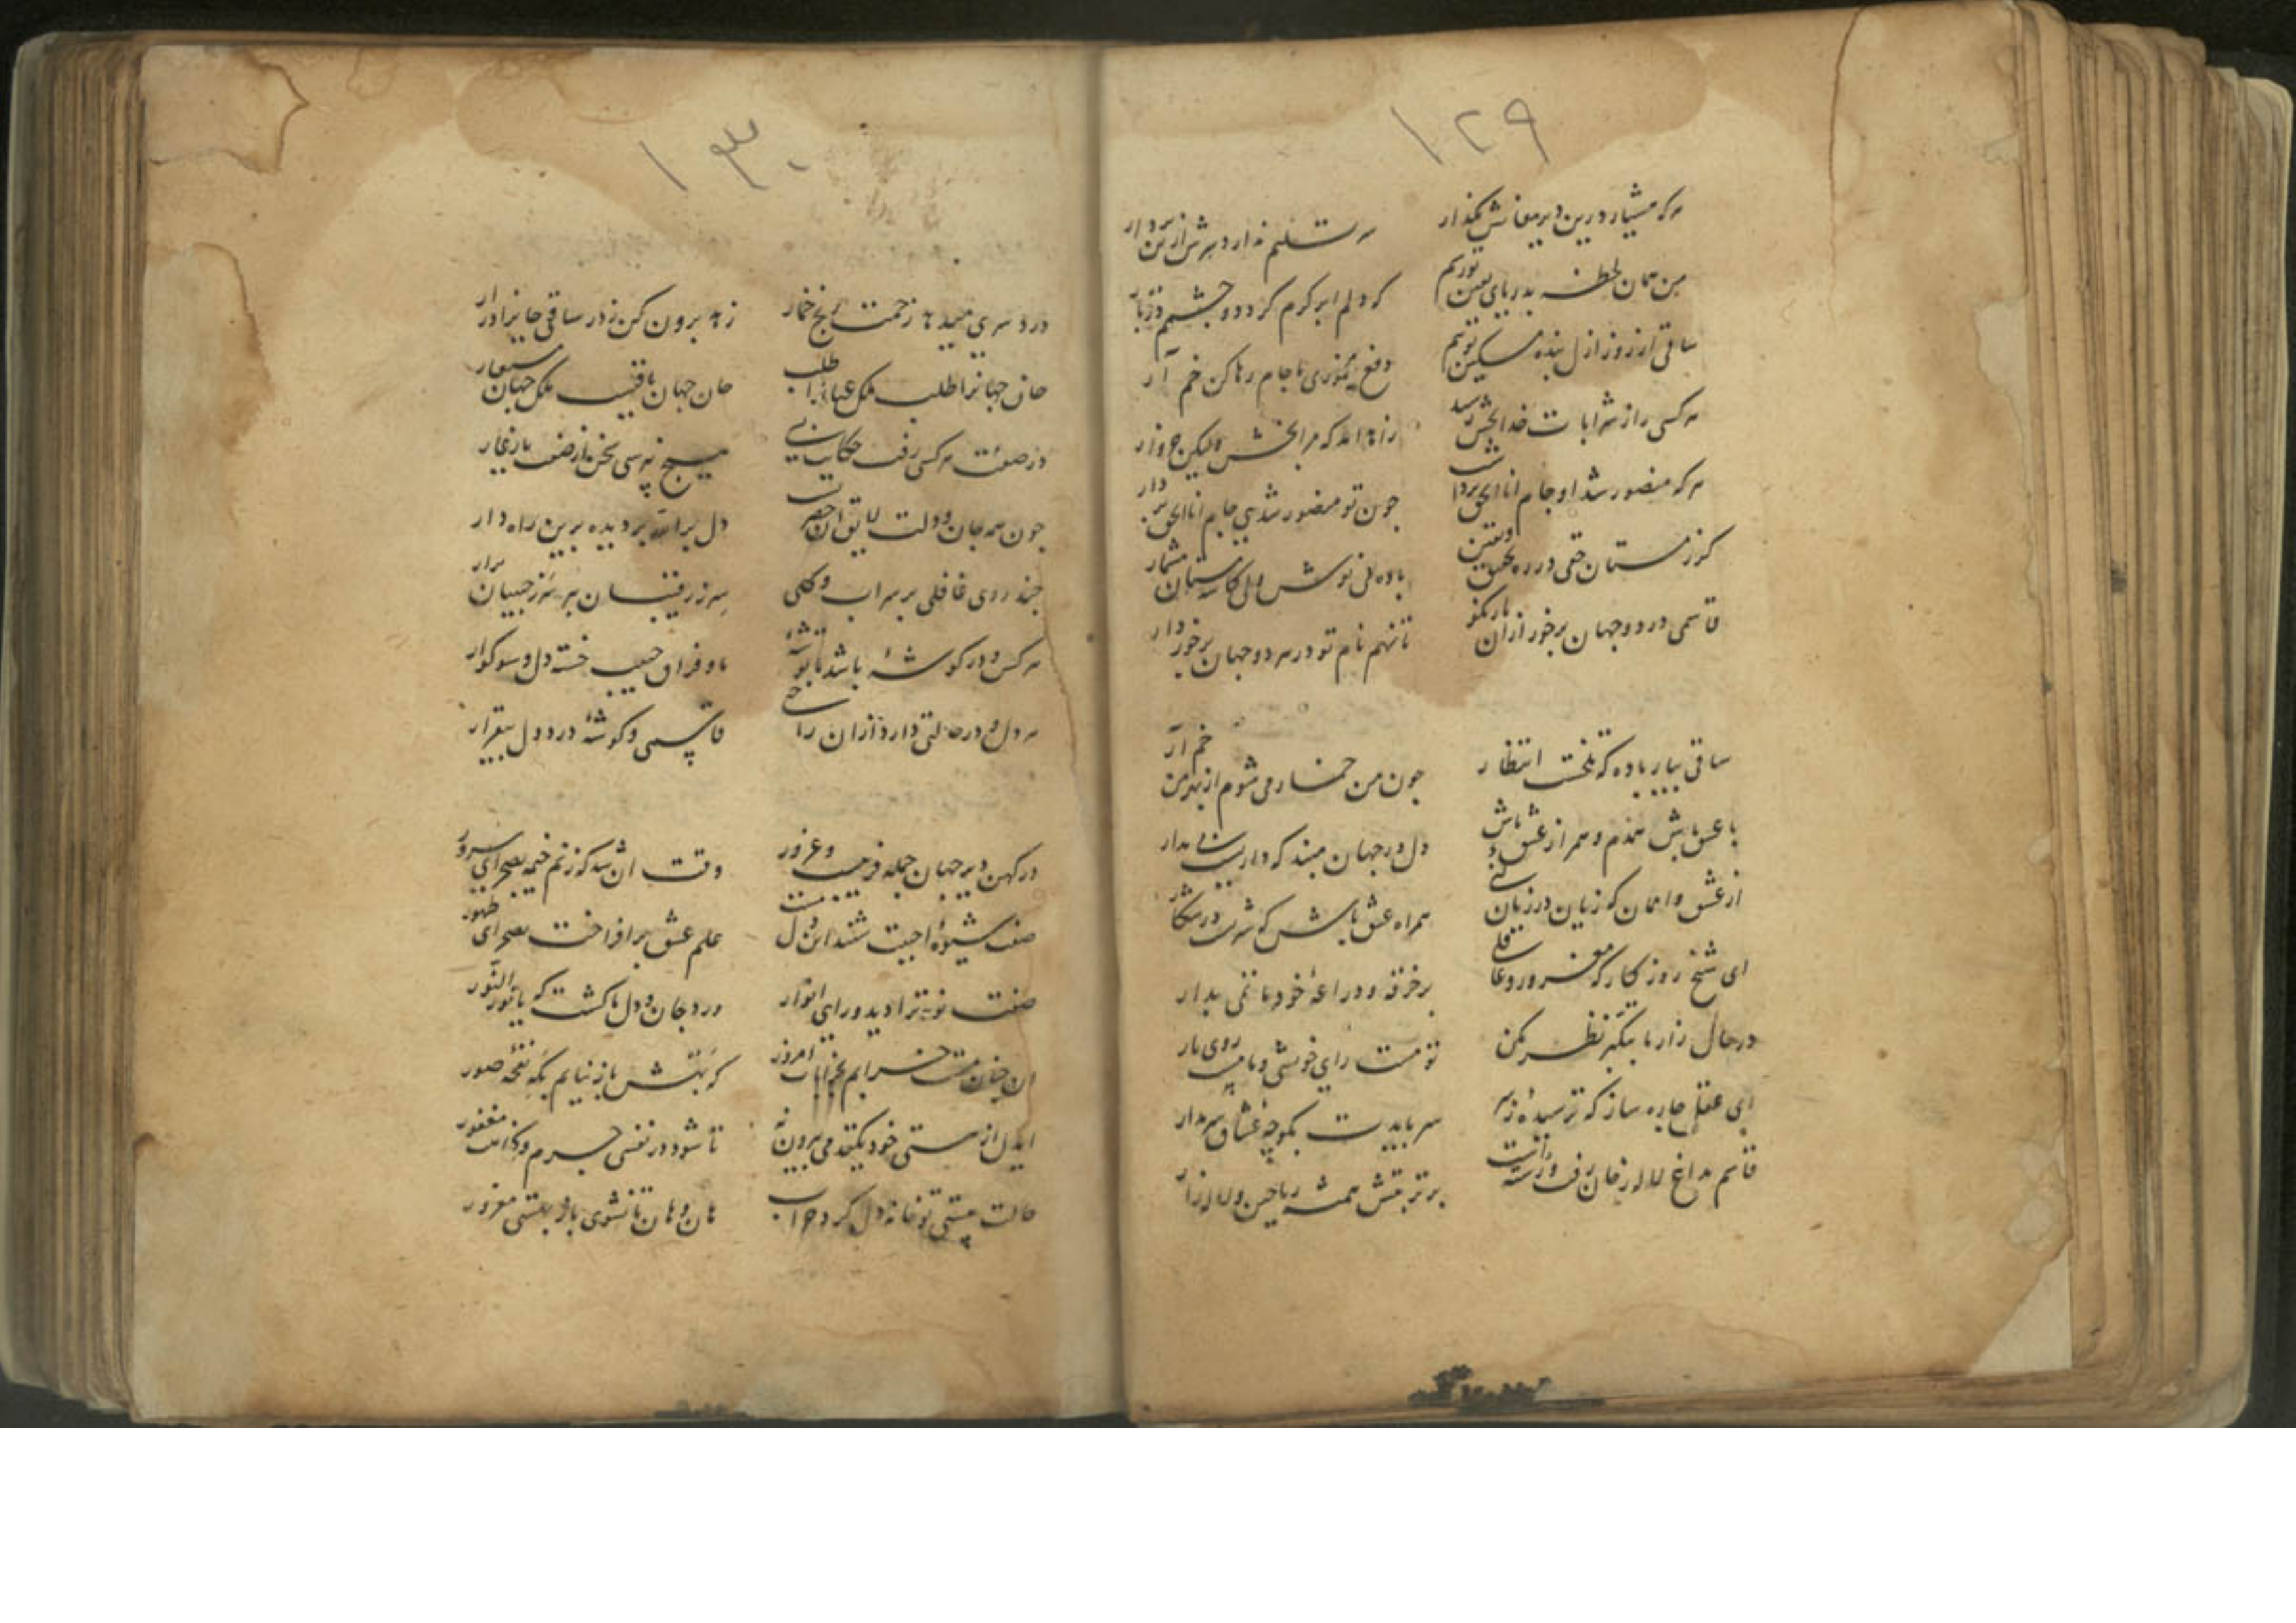 ۱۲۹
هر که هشیار درین دیر مغانش مگذار
سر تسلیم ندارد سرش از تن بردار
من همان لحظه بدریای یقین توریم
که دلم ابر کرم کرد دو چشمم
ساقی از روز ازل بنده مسکین توییم
دفع مخموری ما جام رها کن خم آر
هر کسی را ز شرابات خدا بخش رسید
زاهد
هر که منصور شد او جام انا الحق برداشت
چون تو منصور شدی جام انا الحق بردار
کز مستان حقی در ره تحقیق و یقین
باده می نوش ولی کاسه مستان مشمار
قاسمی در دو جهان برخور ازان یار نکو
تا نهم نام تو در هر دو جهان برخوردار
ساقی بیار باده که تلخست انتظار
چون من خمار می شوم از بهر من خم آر
با عشق باش همدم و همراز عشق باش
دل در جهان مبند که دار مدار
از عشق وا ممان که زیان در زیان
همراه عشق باش که در شکار
ای شیخ روزگار که مغرور و عاقلی
بر خرقه و دراعه خود ما نمی بدار
در حال زار ما بتکبر نظر مکن
تو مست رای خویشی و ما مست روی یار
ای عقل چاره ساز که ترسیده ز سر
سر بایدت بکوچه عشاق سر مدار
قاسم بداغ لاله رخان رفت و
بر تربتش همیشه ریاحین و لاله زار
۱۳۰
درد سری میدهد زحمت رنج خمار
زهد برون کن ز در ساقی جانرا درار
جان جهانرا طلب ملک طلب
جان جهان باقیست ملک جهان مستعار
در صفتت هر کسی رفت حکایت بسی
هیچ نپرسی سخن از صف یار غار
چون همه جان و دلت لایق ان حضرتست
دل بر دیده برین راه دار
چند روی غافلی بر سر اب و گلی
سر ز رقیبان ببر سر ز حبیبان برار
هر کس و در گوشه باشد با توشه
ما و فراق حبیب خسته دل و سوگوار
هر دل و در حالتی دارد ازان راحتی
قاسمی و گوشه درد دل بیقرار
در کهن دیر جهان جمله فریبست و غرور
وقت ان شد که زنم خیمه بصحرای سرور
صفت شیوه احببت شنید این دل
علم عشق برافراخت بصحرای ظهور
صفت نور ترا دید ورای انوار
ورد جان و دل ما گشت که یا نور النور
ان چنان مست خرابم بخرابات امروز
که بهش باز نیایم بگه نفخه صور
ایدل از هستی خود یکقدمی بیرون نه
تا شود در نفسی جرم و گناهت مغفور
حالت هستی تو خانه دل کرد خراب
هان و هان تا نشوی باز بهستی مغرور